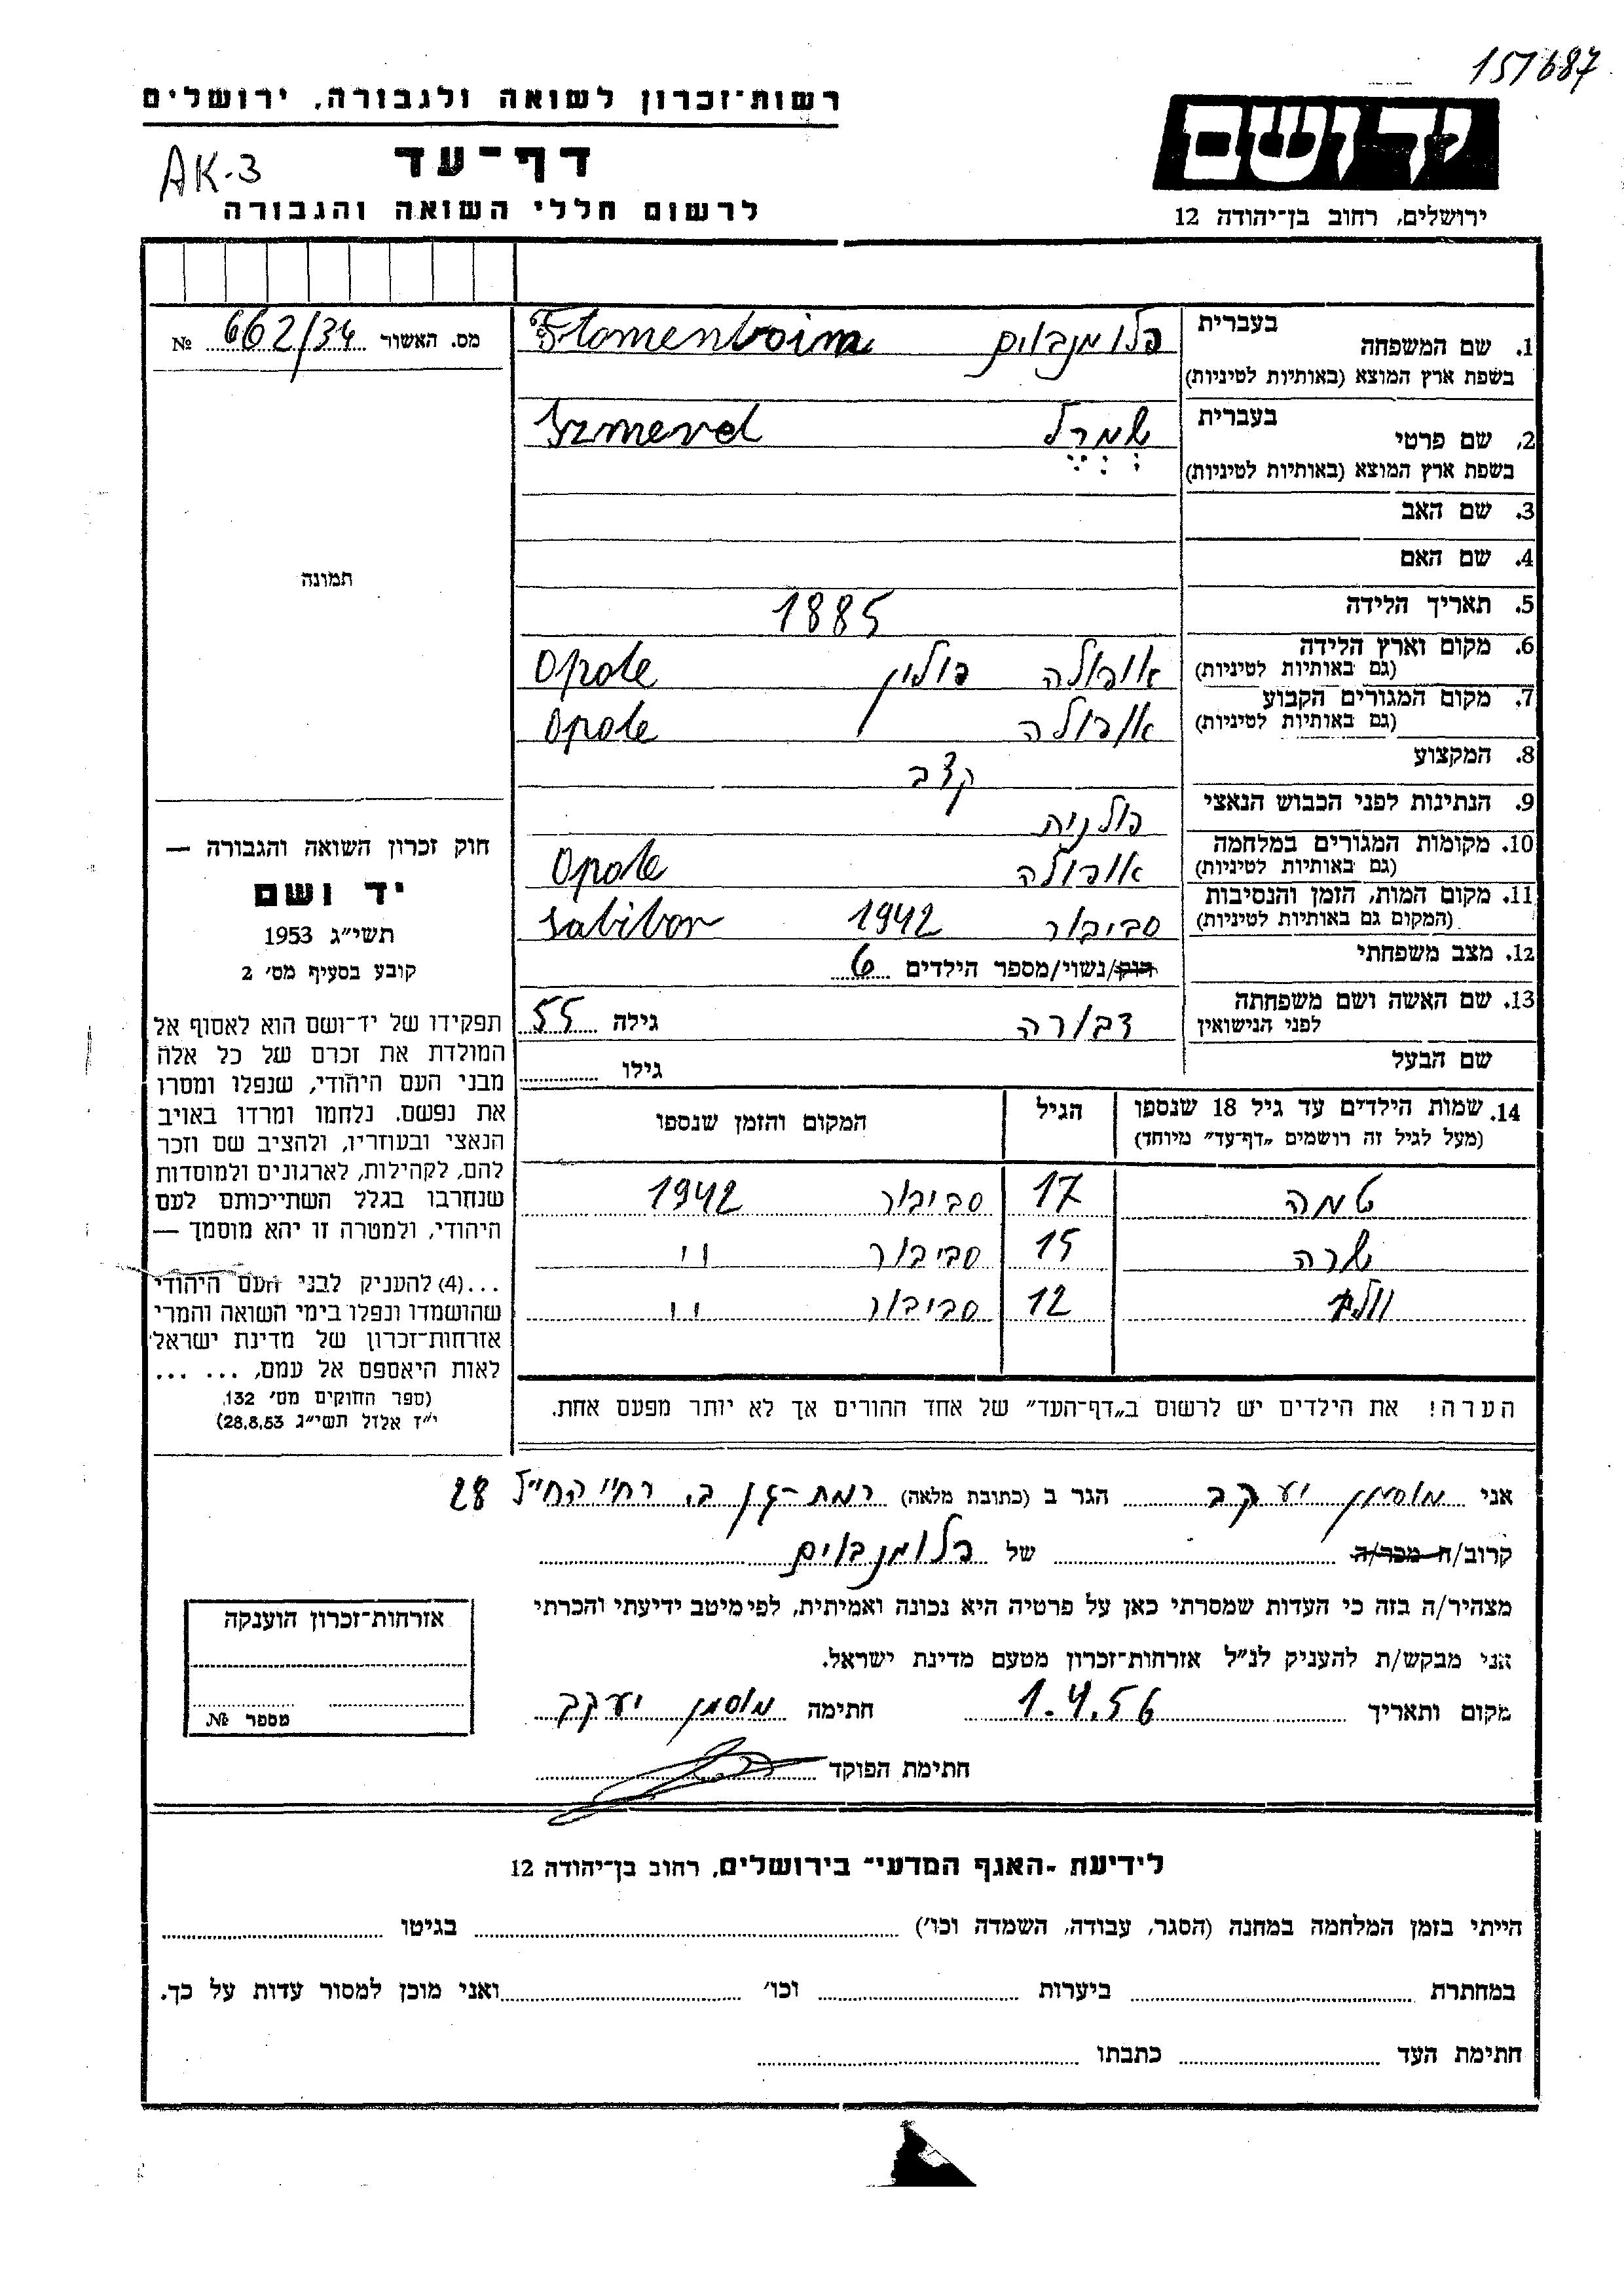 151687
רשות־זכרון לשואה ולגבורה, ירושלים
דף־עד
AK-3
לרשום חללי השואה והגבורה
יד ושם
ירושלים, רחוב בן־יהודה 12
מס. האשור 662/34 №
1. שם המשפחה
בעברית
בשפת ארץ המוצא (באותיות לטיניות)
פלומנבוים Flomenboim
2. שם פרטי
בעברית
בשפת ארץ המוצא (באותיות לטיניות)
שמרל Szmerel
3. שם האב
4. שם האם
תמונה
5. תאריך הלידה 1885
6. מקום וארץ הלידה
(גם באותיות לטיניות)
אופולה פולין Opole
7. מקום המגורים הקבוע
(גם באותיות לטיניות)
אופולה Opole
8. המקצוע קצב
9. הנתינות לפני הכבוש הנאצי פולנית
10. מקומות המגורים במלחמה
(גם באותיות לטיניות)
אופולה Opole
11. מקום המות, הזמן והנסיבות
(המקום גם באותיות לטיניות)
סביבור 1942 Sabibor
12. מצב משפחתי
רוק/נשוי/מספר הילדים 6
13. שם האשה ושם משפחתה
לפני הנישואין
דבורה גילה 55
שם הבעל גילו
14. שמות הילדים עד גיל 18 שנספו
(מעל לגיל זה רושמים „דף־עד” מיוחד)
הגיל
המקום והזמן שנספו
טמה 17 סביבור 1942
שרה 15 סביבור "
12 סביבור "
הערה! את הילדים יש לרשום ב„דף־העד” של אחד ההורים אך לא יותר מפעם אחת.
חוק זכרון השואה והגבורה —
יד ושם
תשי״ג 1953
קובע בסעיף מס׳ 2
תפקידו של יד־ושם הוא לאסוף אל
המולדת את זכרם של כל אלה
מבני העם היהודי, שנפלו ומסרו
את נפשם. נלחמו ומרדו באויב
הנאצי ובעוזריו, ולהציב שם וזכר
להם, לקהילות, לארגונים ולמוסדות
שנחרבו בגלל השתייכותם לעם
היהודי, ולמטרה זו יהא מוסמך —
...(4) להעניק לבני העם היהודי
שהושמדו ונפלו בימי השואה והמרי
אזרחות־זכרון של מדינת ישראל
לאות היאספם אל עמם, ... ...
(ספר החוקים מס׳ 132,
י״ז אלול תשי״ג 28.8.53)
אני מוסמן יעקב הגר ב (כתובת מלאה) רמת-גן ב. רח' החי״ל 28
קרוב/ה מכר/ה של פלומנבוים
מצהיר/ה בזה כי העדות שמסרתי כאן על פרטיה היא נכונה ואמיתית, לפי מיטב ידיעתי והכרתי
אני מבקש/ת להעניק לנ״ל אזרחות־זכרון מטעם מדינת ישראל.
מקום ותאריך 1.4.56 חתימה מוסמן יעקב
חתימת הפוקד
אזרחות־זכרון הוענקה
מספר №
לידיעת ־האגף המדעי־ בירושלים, רחוב בן־יהודה 12
הייתי בזמן המלחמה במחנה (הסגר, עבודה, השמדה וכו׳) בגיטו
במחתרת ביערות וכו׳ ואני מוכן למסור עדות על כך.
חתימת העד כתבתו